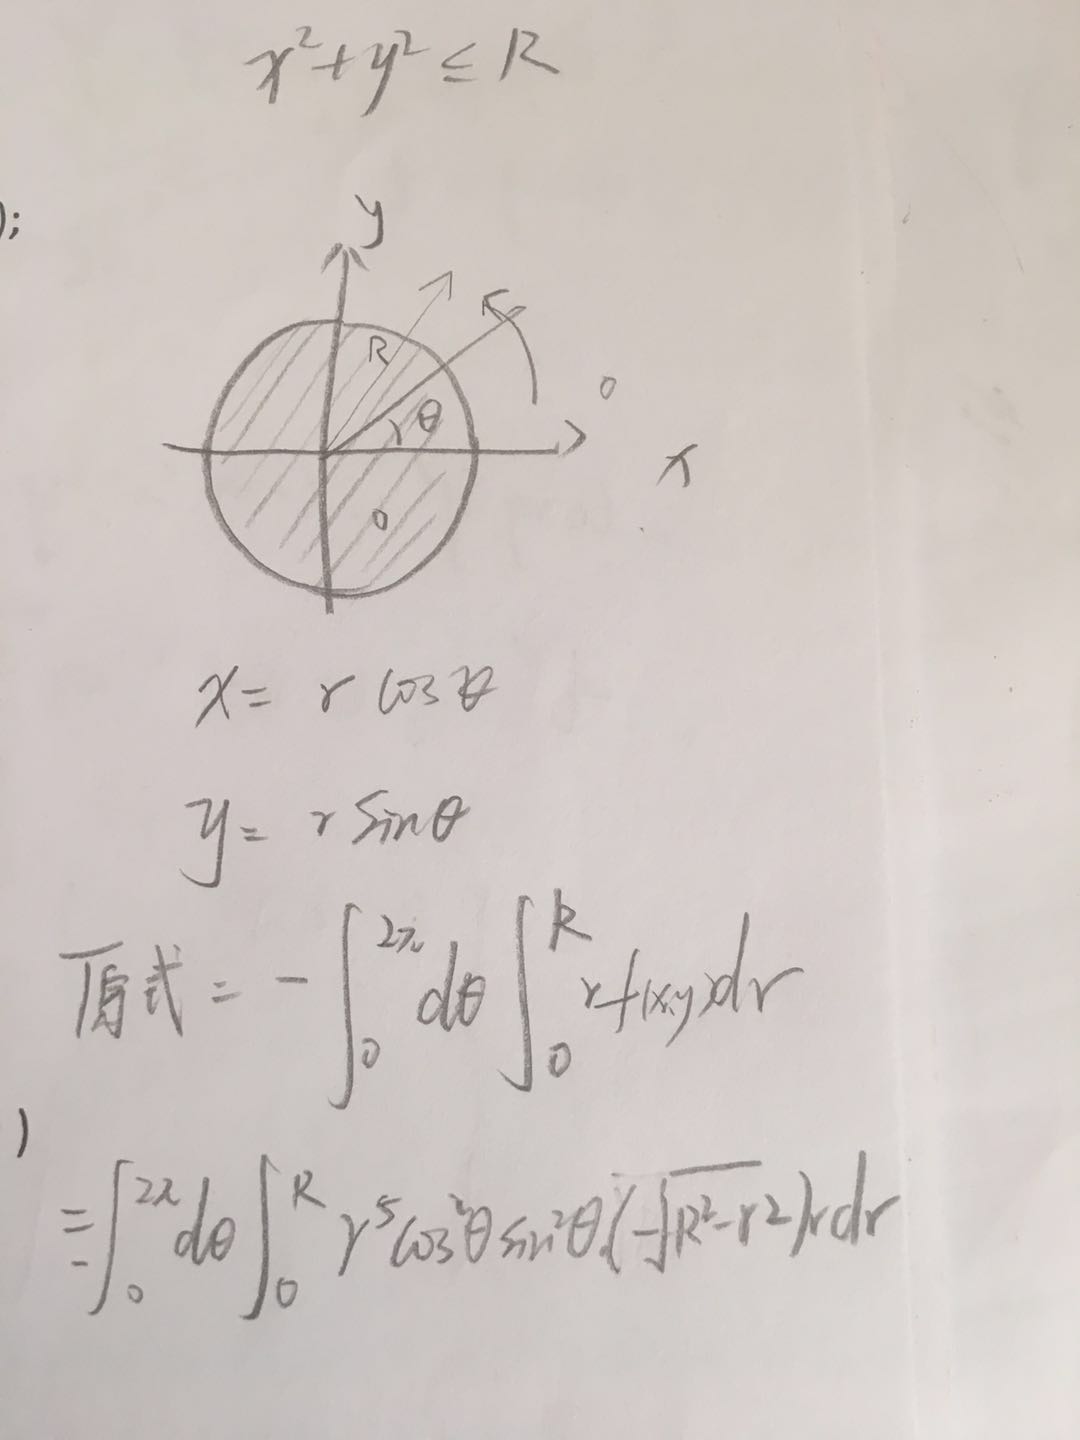 x²+y² ≤ R
);
y
R
θ
0
x
0
x = r cosθ
y = r sinθ
原式 = -∫₀^{2π} dθ ∫₀^R r f(x,y) dr
)
= -∫₀^{2π} dθ ∫₀^R r⁵cos²θ sin²θ (-√R²-r²) r dr